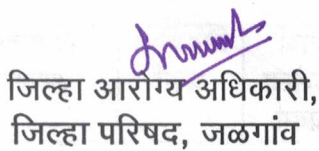 जिल्हा आरोग्य अधिकारी,
जिल्हा परिषद, जळगांव